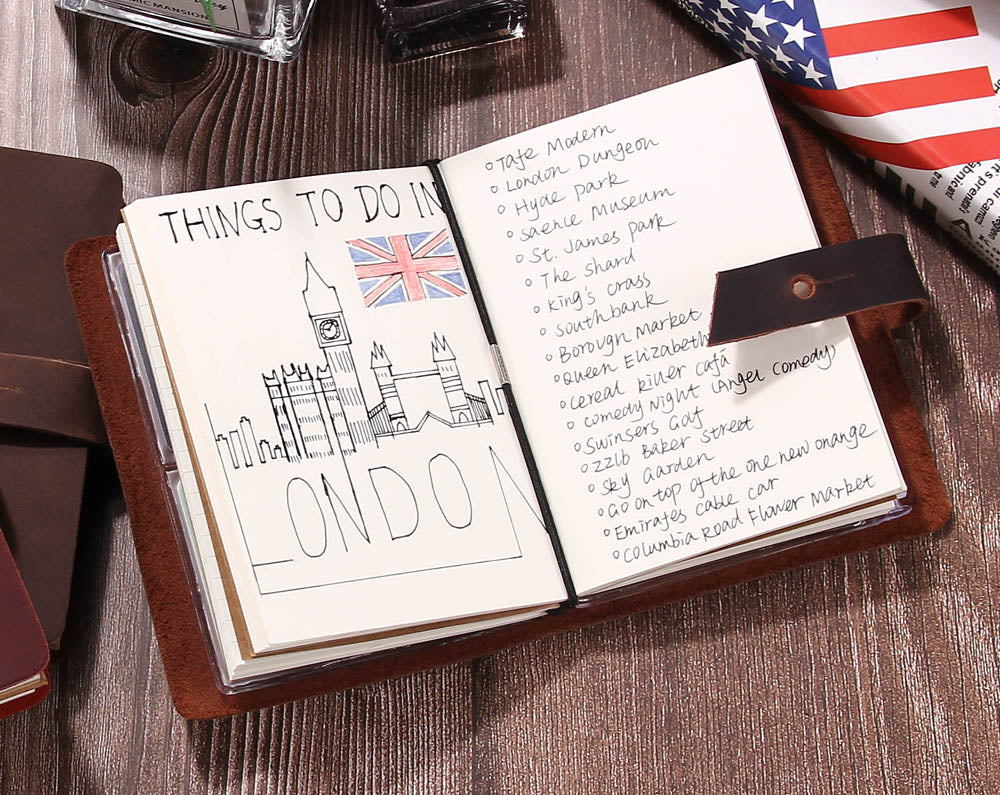 MIC MANSION
THINGS TO DO IN
LONDON
Tate Modern
London Dungeon
Hyde park
Saence Museum
St. James park
The shard
King's crass
southbank
Borough Market
Queen Elizabeth
cereal killer cafa
comedy Night (Angel comedy)
Swinsers Golf
221b Baker street
sky Garden
Go on top of the one new orange
Emirates cable car
Columbia Road Flower Market